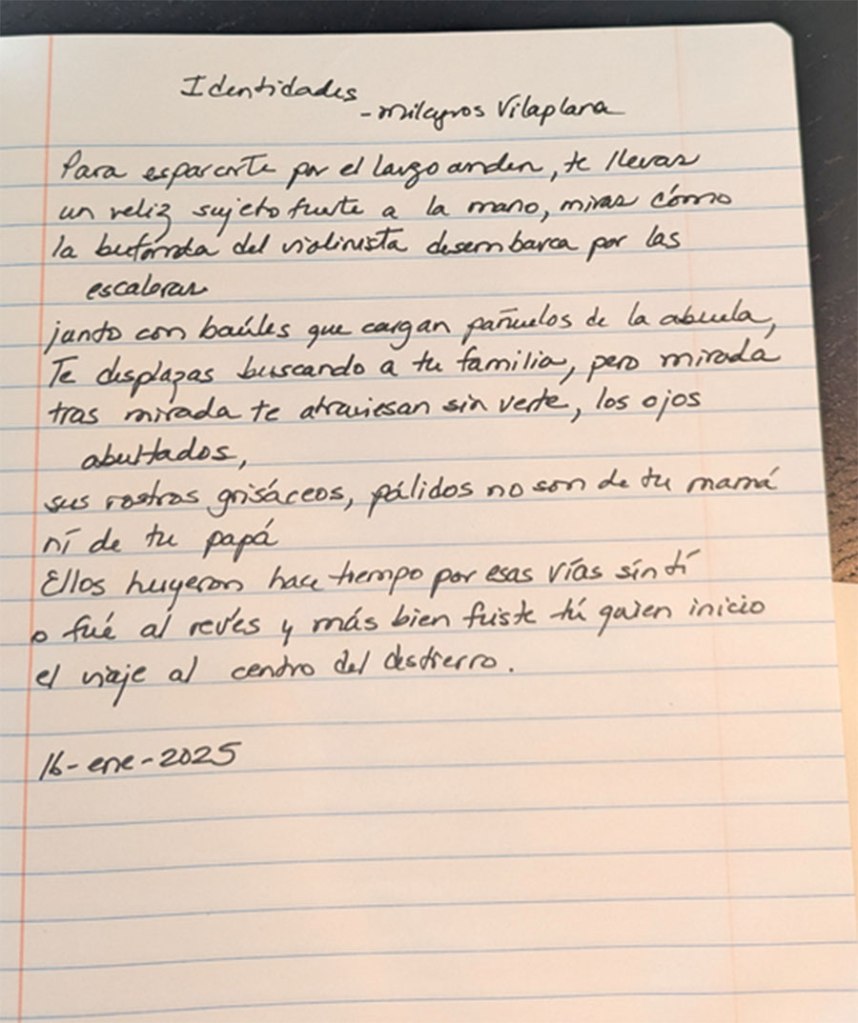 Identidades
- milagros Vilaplana
Para esparcirte por el largo anden, te llevas
un veliz sujeto fuerte a la mano, miras cómo
la bufanda del violinista desembarca por las
escaleras
junto con baúles que cargan pañuelos de la abuela,
Te desplazas buscando a tu familia, pero mirada
tras mirada te atraviesan sin verte, los ojos
abultados,
sus rostros grisáceos, pálidos no son de tu mamá
ní de tu papá
Ellos huyeron hace tiempo por esas vías sín tí
o fué al revés y más bien fuiste tú quien inicio
el viaje al centro del destierro.
16-ene-2025